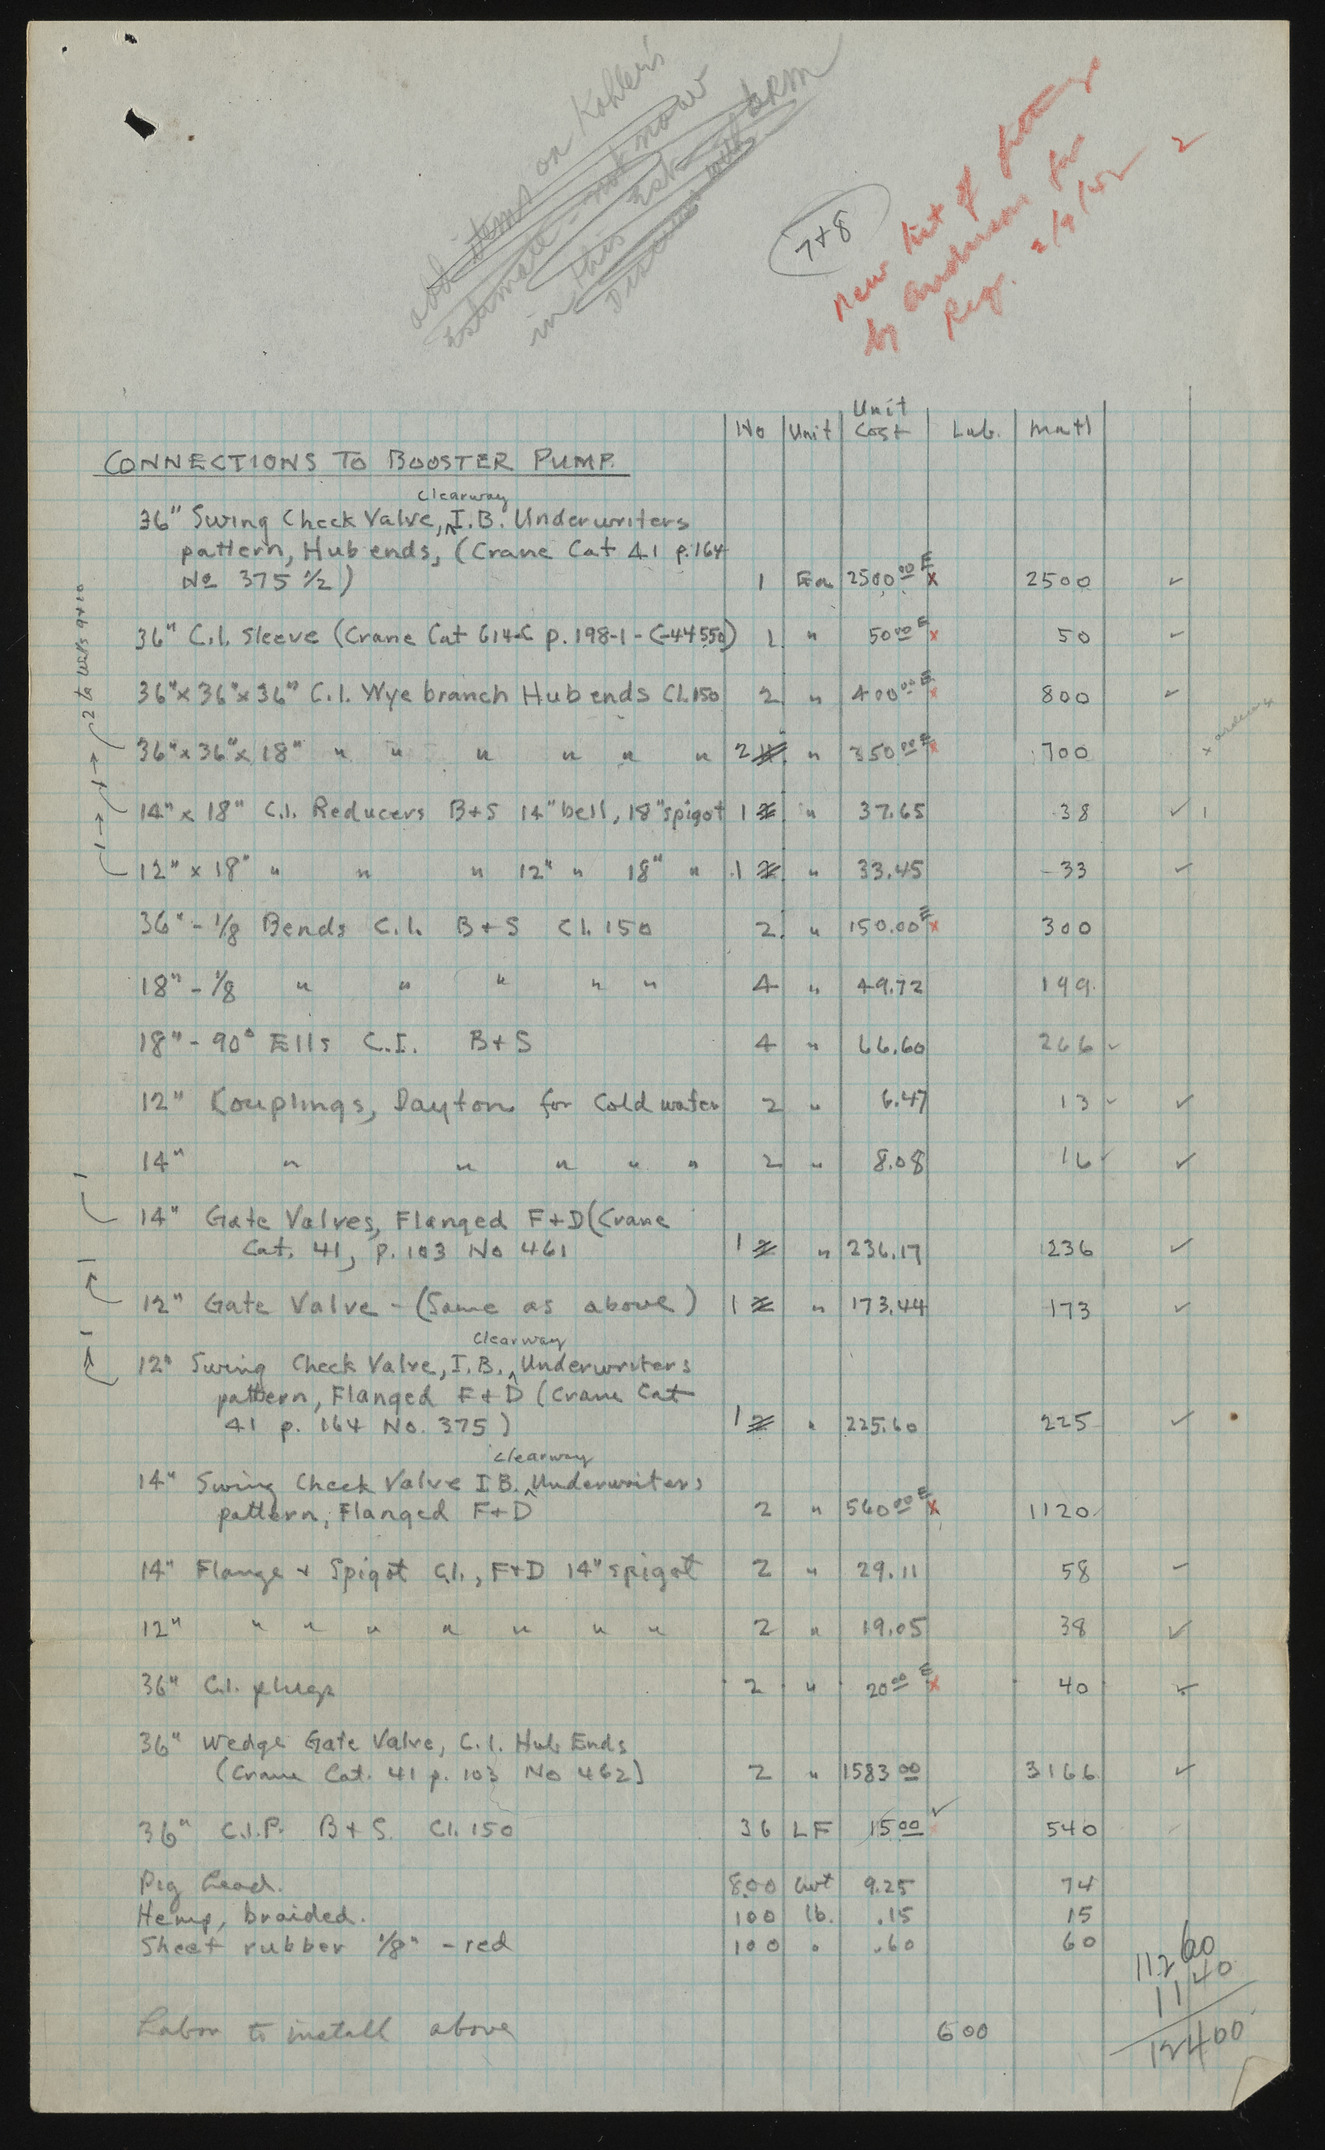 add items on Kohler's
Estimate - not now
in this Est form
Discuss with BRM
7+8
New list of fittings
by Anderson for
Reg. 2/9/52
2
No Unit Unit Cost Lab. Matl
CONNECTIONS TO BOOSTER PUMP.
Clearway
36" Swing Check Valve, ^ I.B. Underwriters
pattern, Hub ends, (Crane Cat 41 p.164
No 375 1/2) 1 Ea 2500 00 E x 2500 ✓
36" C.I. Sleeve (Crane Cat 614-C p. 198-1-C-44550) 1 " 50 00 E x 50 ✓
36"x36"x36" C.I. Wye branch Hub ends Cl.150 2 " 400 00 E x 800 ✓
36"x36"x18" " " " " " " 2 " 350 00 E x 700
14" x 18" C.I. Reducers B+S 14" bell, 18" spigot 1 2 " 37.65 38 ✓ 1
12" x 18" " " " 12" " 18" " 1 2 " 33.45 33 ✓
36" - 1/8 Bends C.I. B+S Cl. 150 2 " 150.00 E x 300
18" - 1/8 " " " " " 4 " 49.72 199
18" - 90° Ells C.I. B+S 4 " 66.60 266 ✓
12" Kouplings, Dayton for Cold water 2 " 6.47 13 ✓ ✓
14" " " " " " 2 " 8.08 16 ✓ ✓
14" Gate Valves, Flanged F+D (Crane
Cat. 41, p. 103 No 461 1 2 " 236.17 236 ✓
12" Gate Valve - (Same as above) 1 2 " 173.44 173 ✓
Clearway
12" Swing Check Valve, I.B. ^ Underwriters
pattern, Flanged F+D (Crane Cat
41 p. 164 No. 375) 1 2 " 225.60 225 ✓
Clearway
14" Swing Check Valve I B. ^ Underwriters
pattern, Flanged F+D 2 " 560 00 E x 1120
14" Flange + Spigot C.I., F+D 14" spigot 2 " 29.11 58 ✓
12" " " " " " " " 2 " 19.05 38 ✓
36" C.I. plugs 2 " 20 00 E x 40 ✓
36" Wedge Gate Valve, C.I. Hub Ends
(Crane Cat. 41 p. 103 No 462) 2 " 1583 00 3166 ✓
36" C.I.P. B+S. Cl. 150 36 LF 15 00 ✓ 540
Pig Lead. 800 cwt 9.25 74
Hemp, braided. 100 lb. .15 15
Sheet rubber 1/8" - red 100 " .60 60
11260
1140
12400
Labor to install above 600